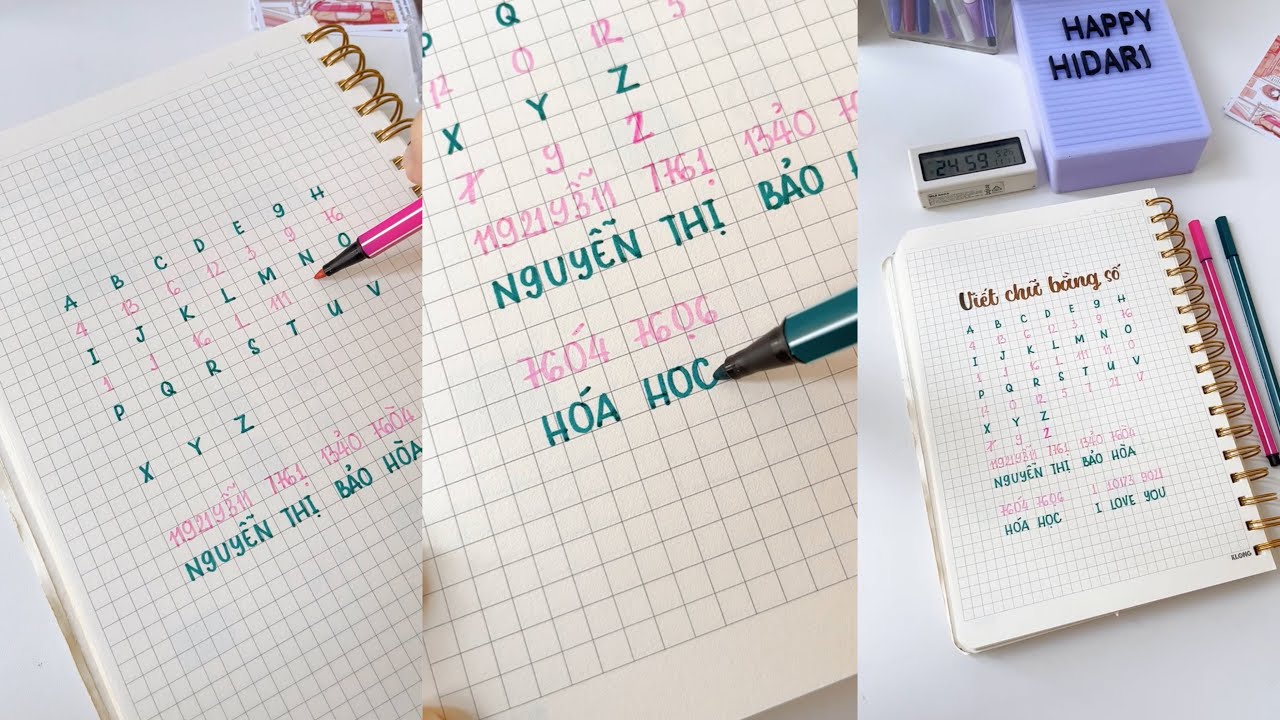 A B C D E g H
4 13 6 12 3 9 76
I J K L M N O
1 1 16 1 111
P Q R S T U V
X Y Z
11921y3̂̃11 7761̣ 134̉0 760̀4
NgUYỄN THỊ BẢO HÒA
P Q
12 0 12 5
X Y Z
X y Z
11921y3̂̃11 7761̣ 134̉0
NgUYỄN THỊ BẢO
760́4 760̣6
HÓA HỌC
HAPPY
HIDAR1
24 59
Viết chữ bằng số
A B C D E g H
4 13 6 12 3 9 76
I J K L M N O
1 1 16 1 111 11 0
P Q R S T U V
12 0 12 5 7 21 V
X Y Z
X y Z
11921y3̂̃11 7761̣ 134̉0 760̀4
NgUYỄN THỊ BẢO HÒA
760́4 760̣6
HÓA HỌC I LOVE YOU
KLONG